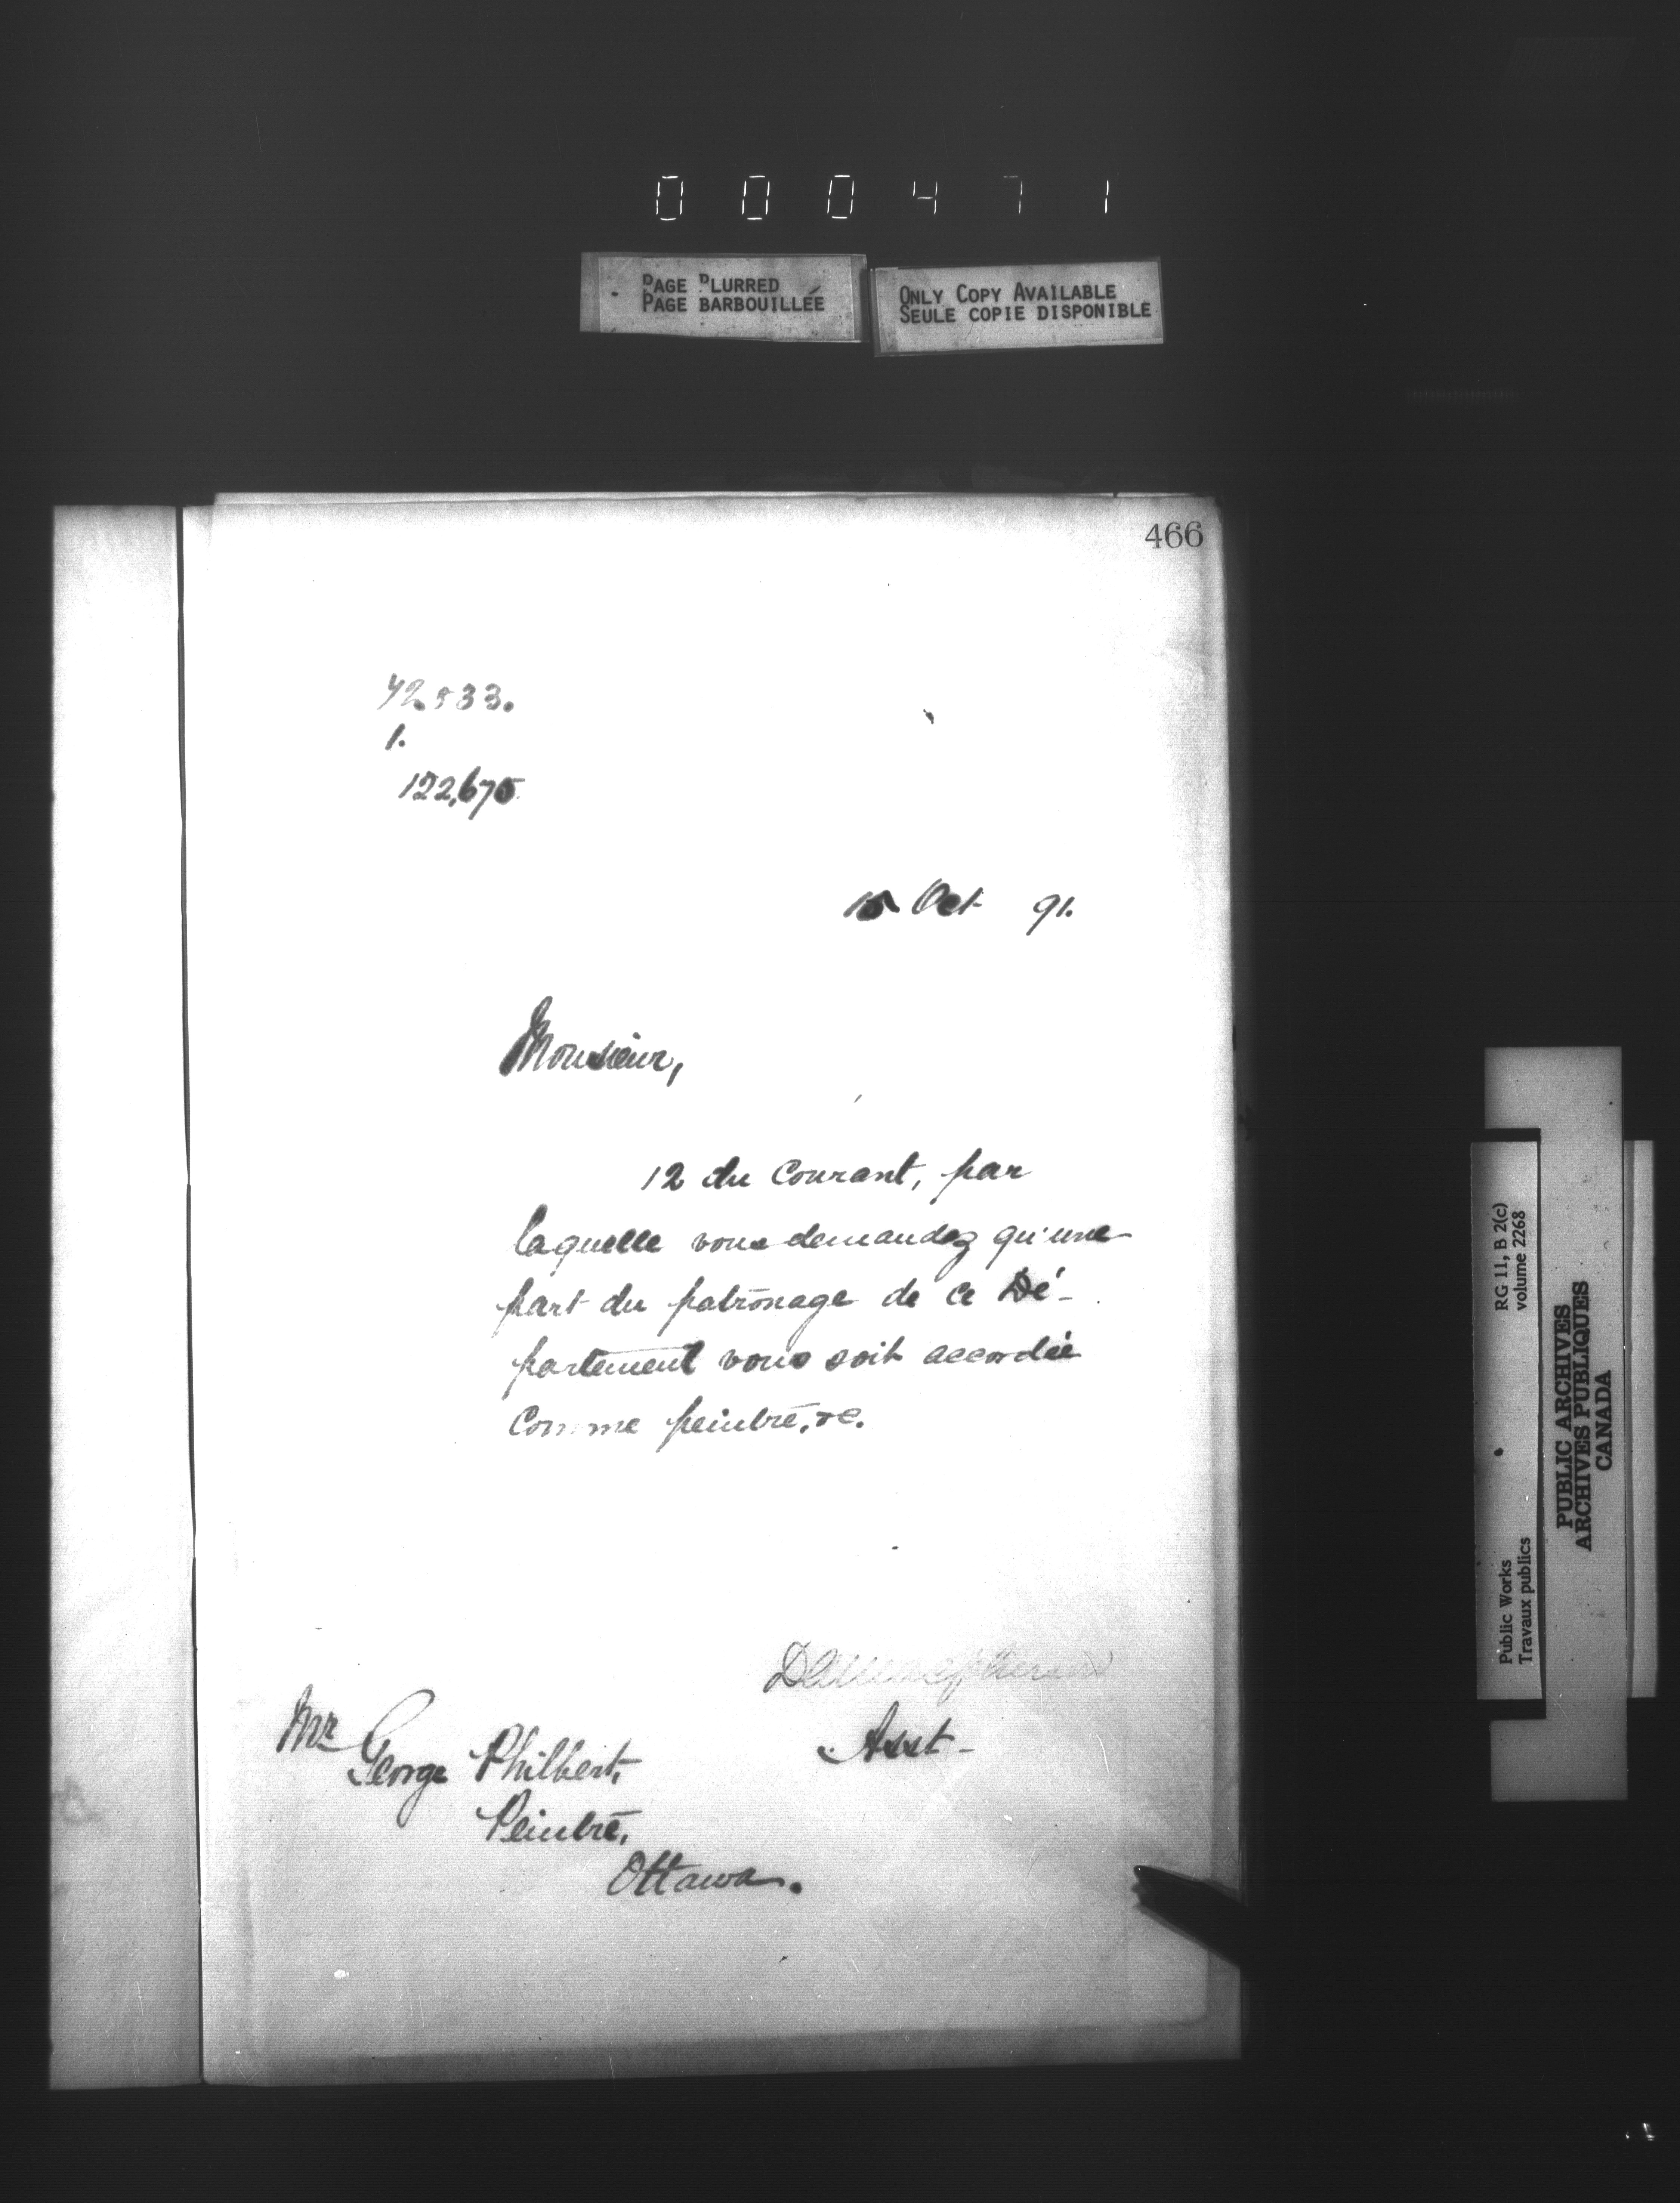 000471
PAGE BLURRED
PAGE BARBOUILLÉE
ONLY COPY AVAILABLE
SEULE COPIE DISPONIBLE
466
1.
122,675
15 Oct 91.
Monsieur,
12 du Courant, par
laquelle vous demandez qu'une
part du patronage de ce Dé-
partement vous soit accordée
Comme peintre, &c.
Asst-
Mr George Philbert,
Peintre,
Ottawa.
Public Works RG 11, B 2(c)
Travaux publics volume 2268
PUBLIC ARCHIVES
ARCHIVES PUBLIQUES
CANADA